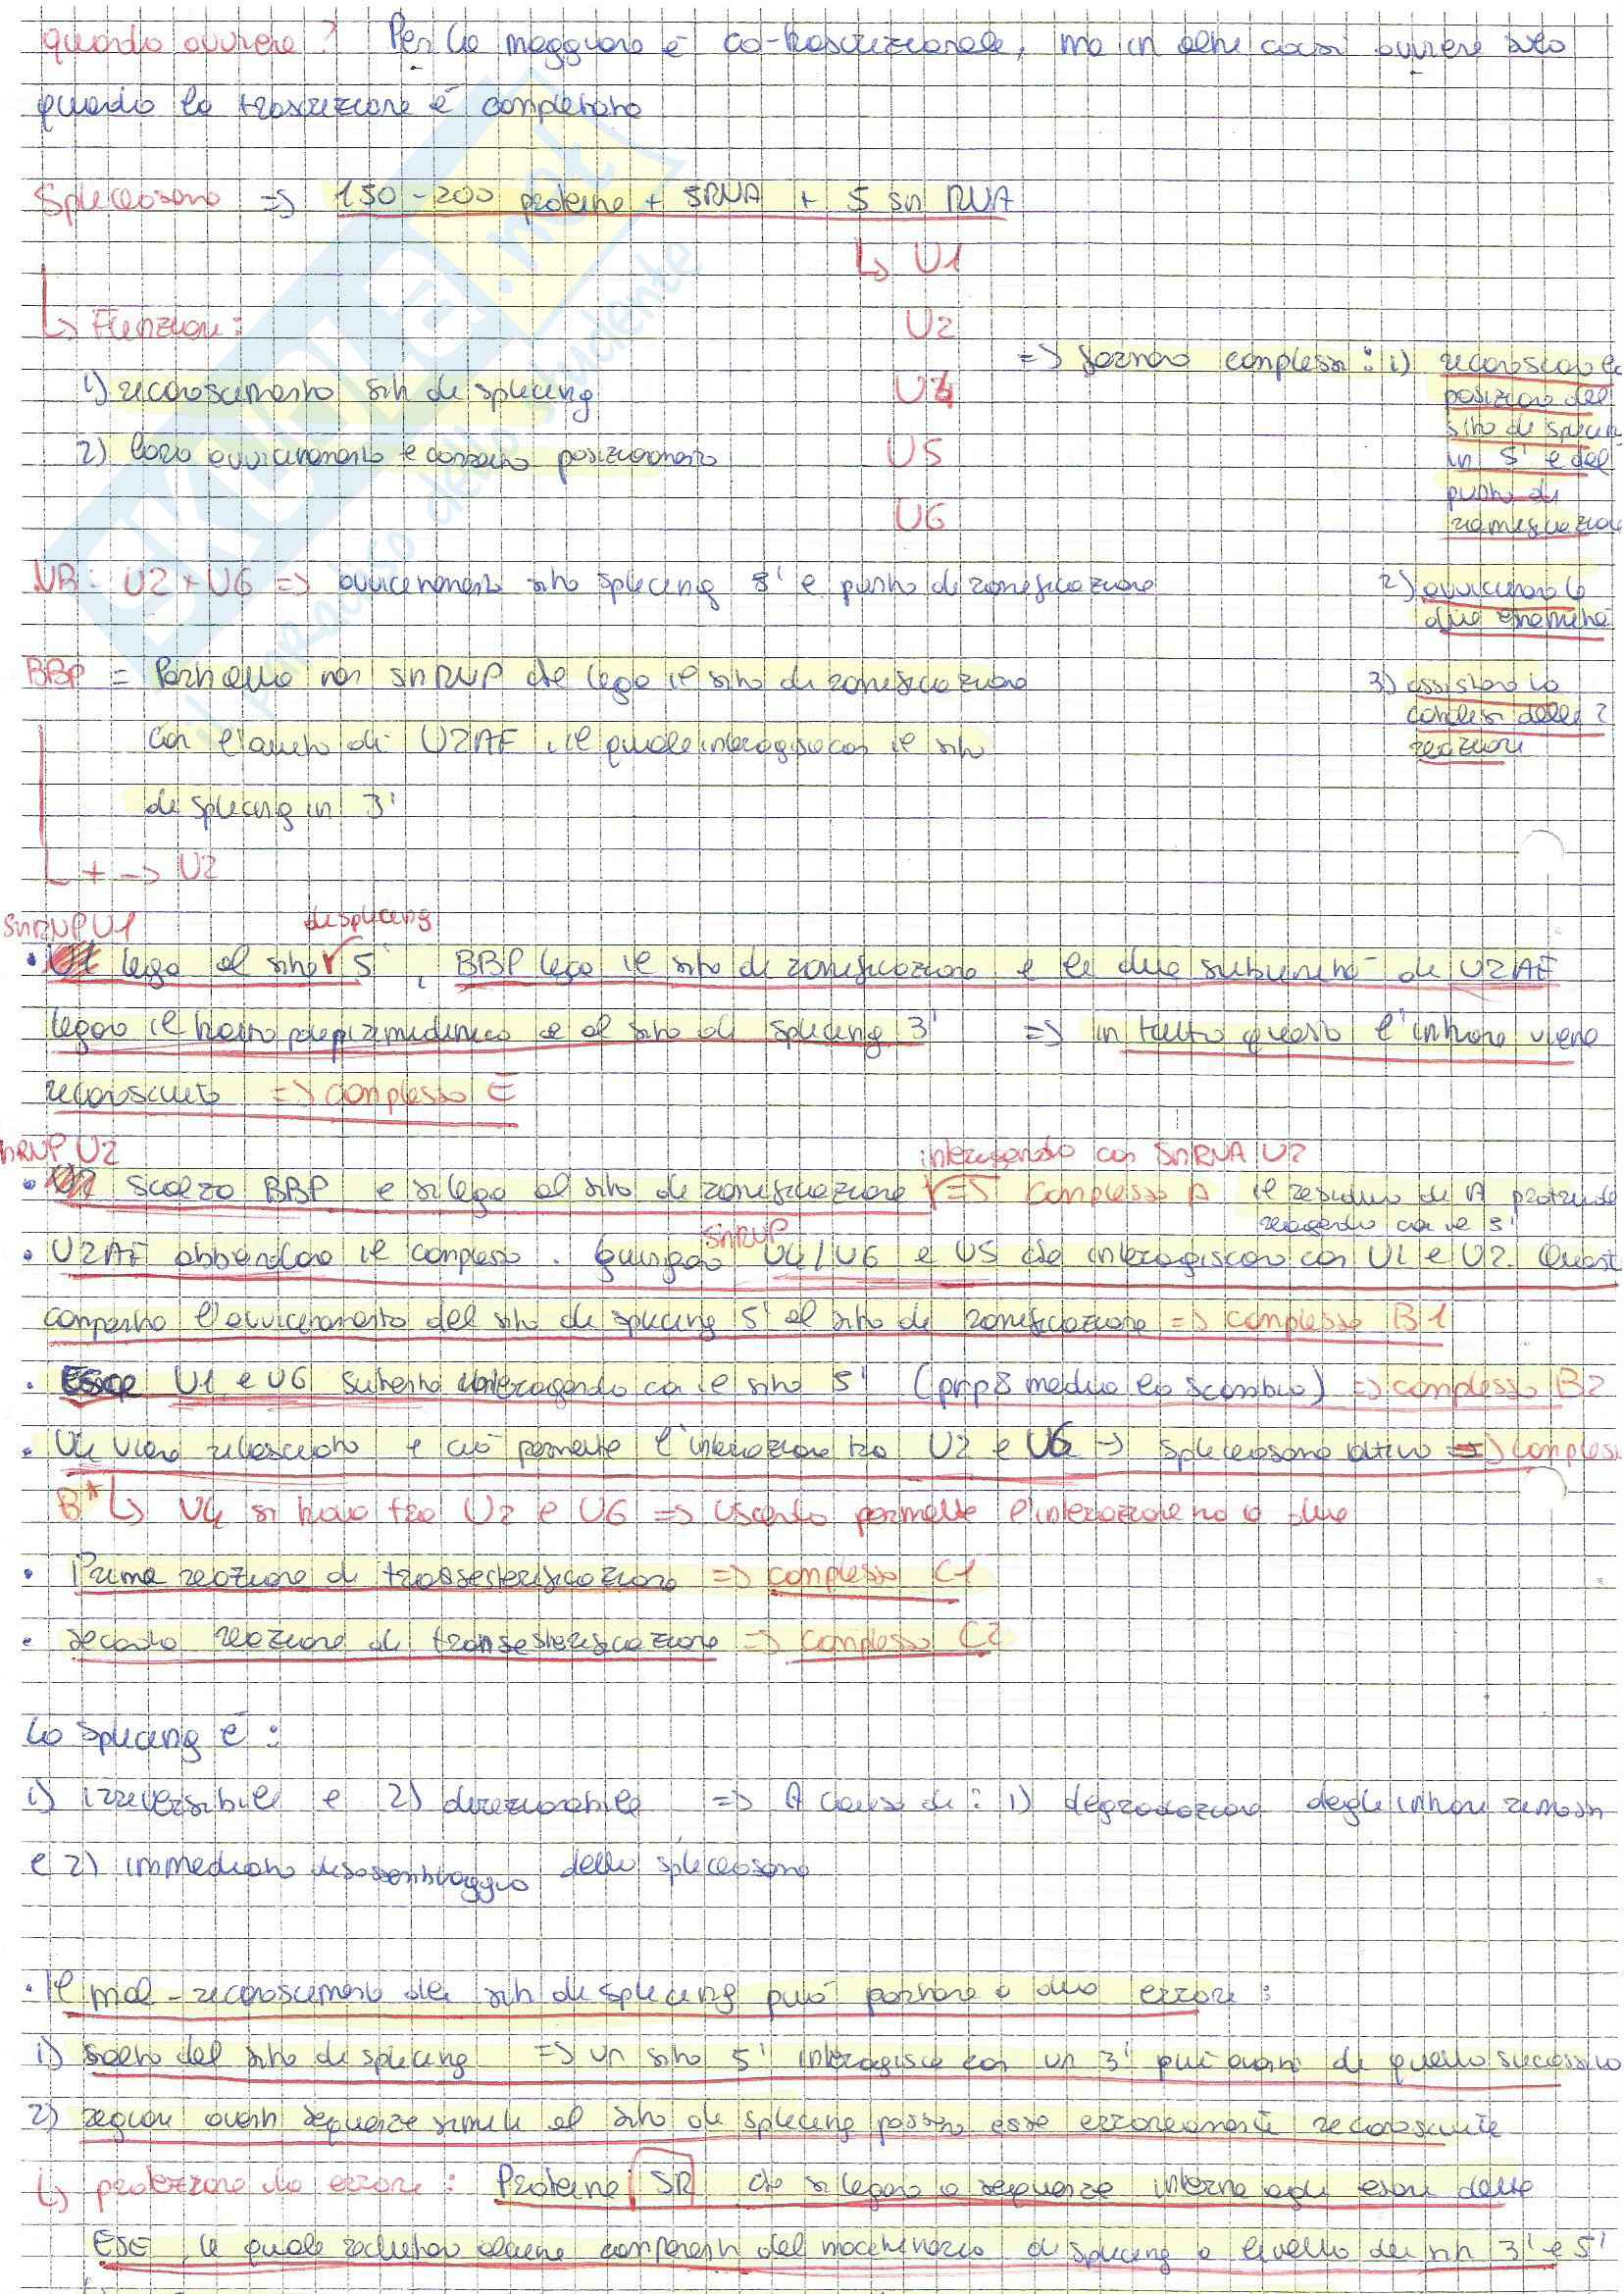 quando avviene? Per lo maggiore è co-trascrizionale, ma in altri casi avviene solo
quando la trascrizione è completata
Spliceosoma => 150-200 proteine + snRNA + 5 sn RNA
↳ U1
U2
U4
U5
U6
↳ Funzioni:
1) riconoscimento siti di splicing
2) loro avvicinamento e corretto posizionamento
=> formano complessi: 1) riconoscono la
posizione del
sito di splicin
in 5' e del
punto di
ramificazione
2) avvicinano le
due estremità
3) assistono la
catalisi delle 2
reazioni
NB: U2 + U6 => avvicinamento sito splicing 5' e punto di ramificazione
BBP = Particella non snRNP che lega il sito di ramificazione
con l'aiuto di U2AF, il quale interagisce con il sito
di splicing in 3'
↳ + -> U2
snRNP U1
di splicing
• lega al sito 5', BBP lega il sito di ramificazione e le due subunità di U2AF
legano il tratto polipirimidinico e al sito di splicing 3' => in tutto questo l'introne viene
riconosciuto => complesso E
nRNP U2
interagendo con snRNA U2
• scalza BBP e si lega al sito di ramificazione => complesso A il residuo di A protrude
reagendo con il 3'
snRNP
• U2AF abbandona il complesso. Giungono U4/U6 e U5 che interagiscono con U1 e U2. Quest
comporta l'avvicinamento del sito di splicing 5' al sito di ramificazione => complesso B1
• Esce U1 e U6 subentra interagendo con il sito 5' (prp8 media lo scambio) => complesso B2
• U4 viene rilasciato e ciò permette l'interazione tra U2 e U6 -> spliceosoma attivo => compless
B* ↳ U4 si trova tra U2 e U6 => uscendo permette l'interazione tra i due
• Prima reazione di transesterificazione => complesso C1
• seconda reazione di transesterificazione => complesso C2
Lo splicing è:
1) irreversibile e 2) direzionabile => A causa di: 1) degradazione degli introni rimossi
e 2) immediato disassemblaggio dello spliceosoma
• Il mal-riconoscimento dei siti di splicing può portare a due errori:
1) salto del sito di splicing => un sito 5' interagisce con un 3' più avanti di quello successivo
2) regioni aventi sequenze simili al sito di splicing possono esse erroneamente riconosciute
↳ protezione da errore: Proteine SR che si legano a sequenze interne agli esoni dette
ESE, le quali reclutano alcune componenti del macchinario di splicing a livello dei siti 3' e 5'
SKUOLA.net
il paradiso dello studente